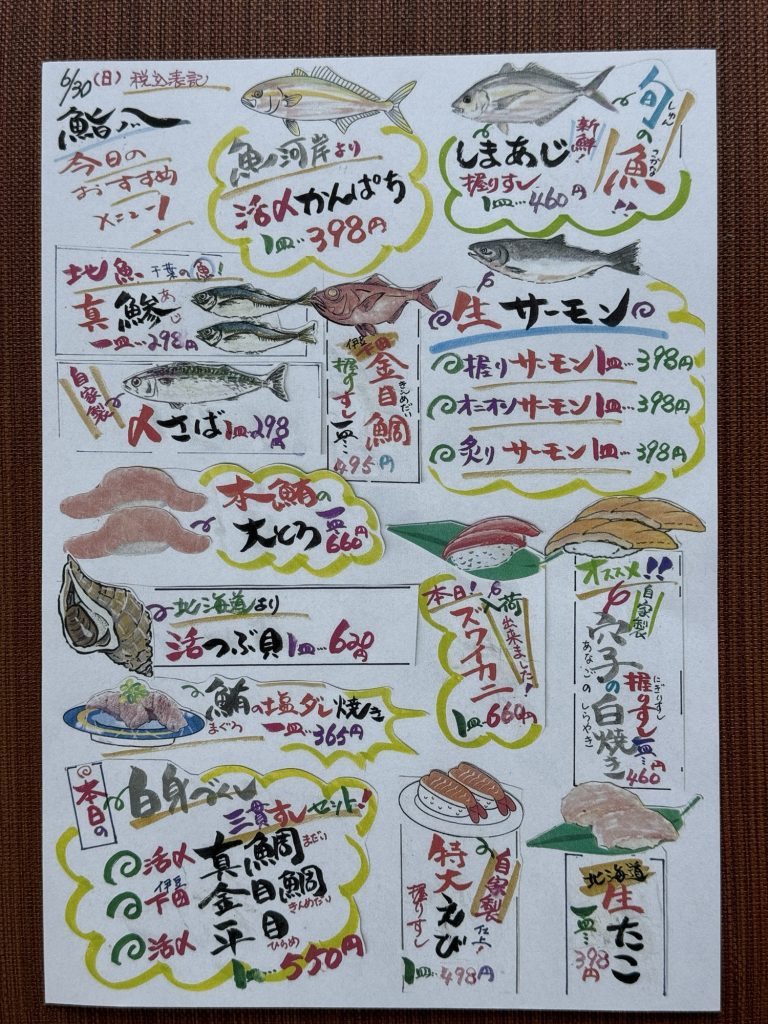 6/30(日) 税込表記
鮨八
今日の
おすすめ
メニュー!
魚河岸より
活〆かんぱち
1皿…398円
旬の魚!!
しゅん
さかな
新鮮!
しまあじ
握りすし
1皿…460円
地魚、千葉の魚!
真鯵
あじ
一皿…298円
自家製
〆さば 1皿…298円
伊豆下田
金目鯛
きんめだい
握りすし
一皿…495円
生サーモン
握りサーモン1皿…398円
オニオンサーモン1皿…398円
炙りサーモン1皿…398円
本鮪の
大とろ
一皿660円
北海道より
活つぶ貝1皿…620円
本日!
入荷出来ました!
ズワイカニ
1皿…660円
オススメ!!
自家製
穴子の白焼き
あなごのしらやき
にぎりずし
握りすし
一皿…460円
鮪の塩ダレ焼き
まぐろ
一皿…365円
本日の
白身づくし
三貫すしセット!
活〆 真鯛
まだい
伊豆下田 金目鯛
きんめだい
活〆 平目
ひらめ
1皿…550円
自家製
仕上!
特大えび
握りすし
1皿…498円
北海道
生たこ
一皿…398円